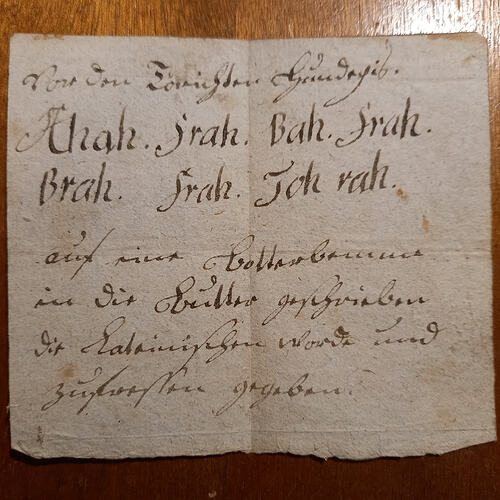 Vor den Törichten Hundepis.
Ahah. Frah. Bah. Frah.
Brah. Frah. Joh rah.
auf eine Botterbemme
in die Butter geschrieben
die Lateinischen Worde und
zufressen gegeben.